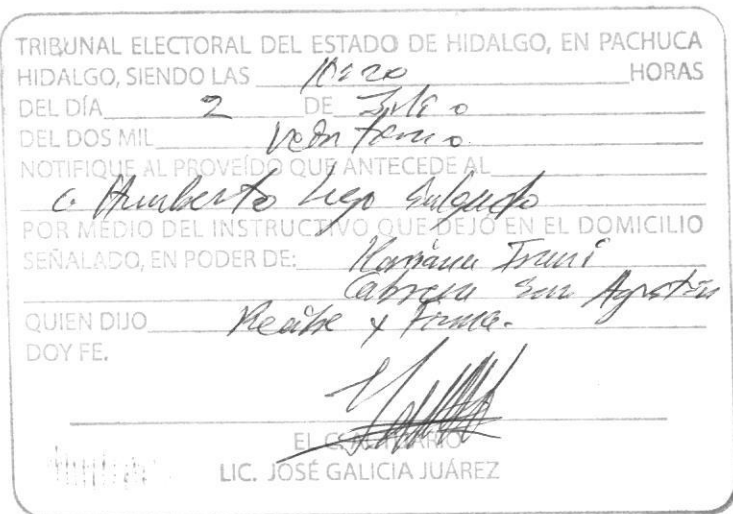 TRIBUNAL ELECTORAL DEL ESTADO DE HIDALGO, EN PACHUCA
HIDALGO, SIENDO LAS 10:20 HORAS
DEL DÍA 2 DE Julio
DEL DOS MIL veintiuno
NOTIFIQUE AL PROVEÍDO QUE ANTECEDE AL
C. Humberto Lugo Salgado
POR MEDIO DEL INSTRUCTIVO QUE DEJÓ EN EL DOMICILIO
SEÑALADO, EN PODER DE:
Cabrera San Agustín
QUIEN DIJO Recibe y Firma.
DOY FE.
EL C. ACTUARIO
LIC. JOSÉ GALICIA JUÁREZ